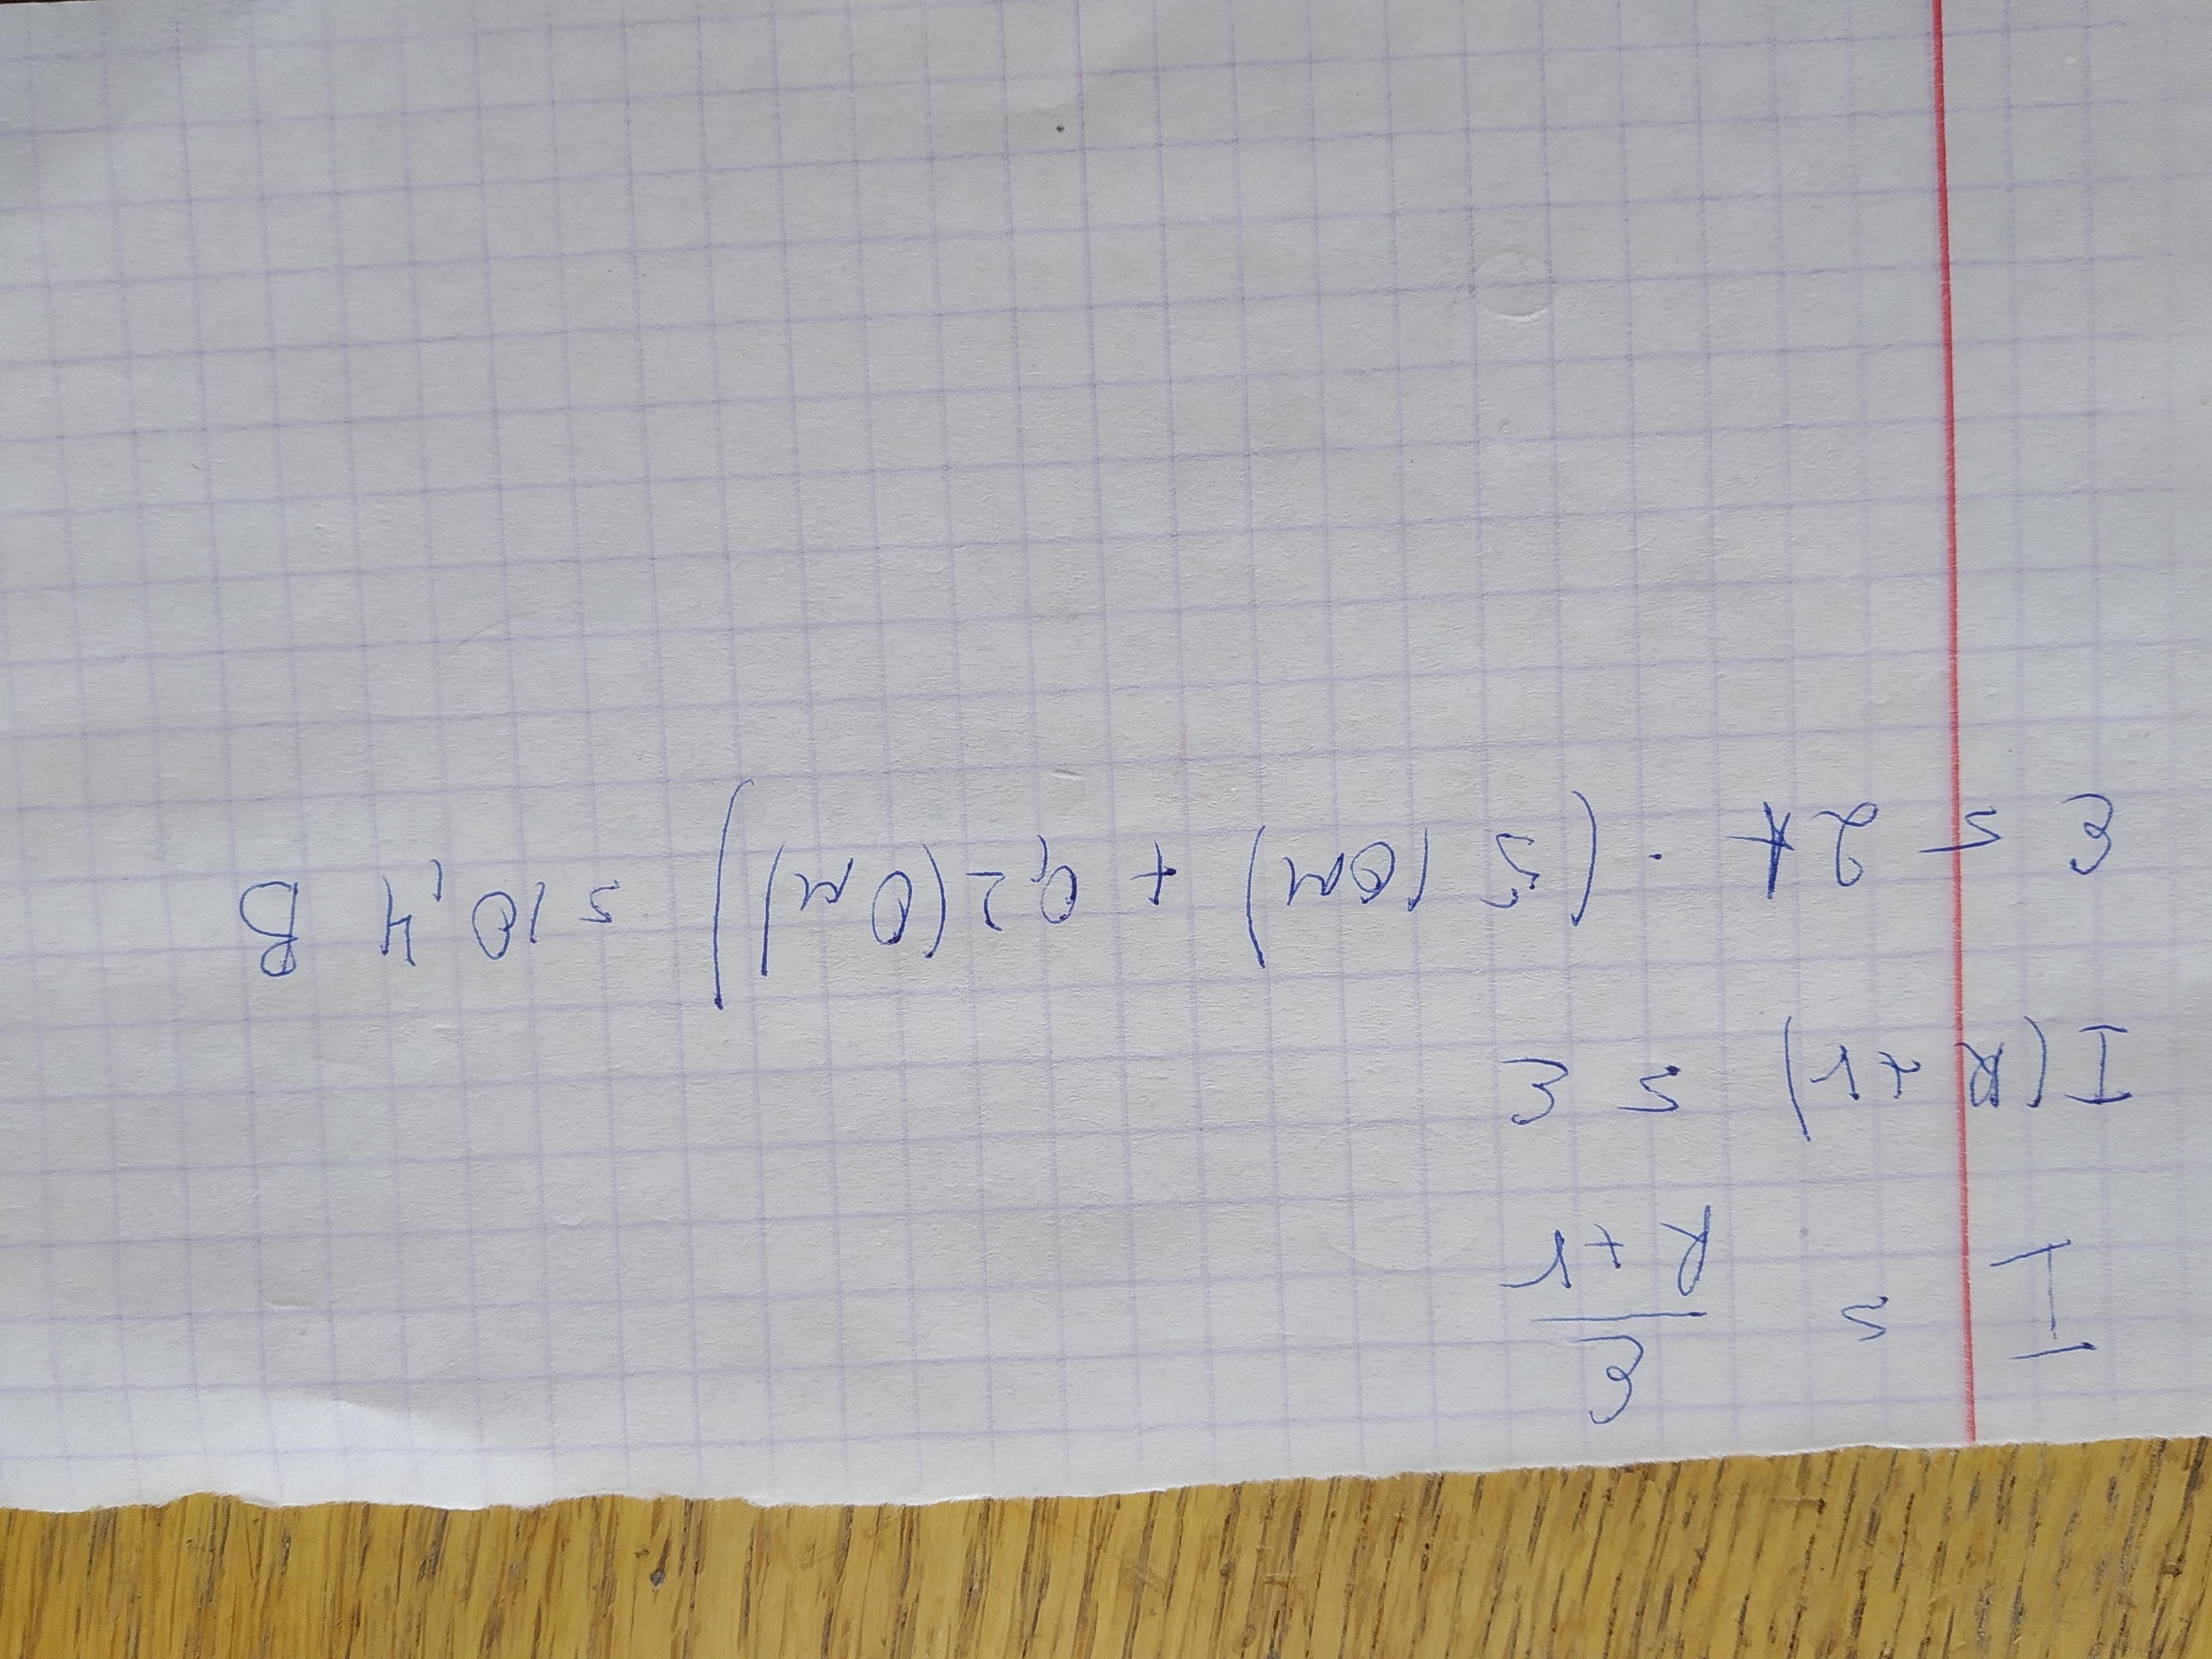 I = ε / R+r
I (R+r) = ε
ε = 2A · (5 (Ом) + 0,2 (Ом)) = 10,4 В